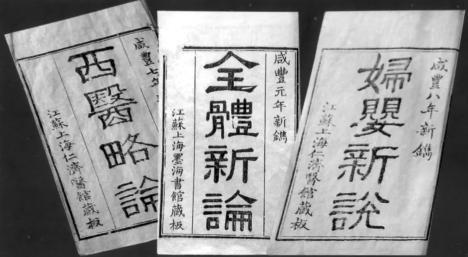 咸豐八年新鐫
婦嬰新説
江蘇上海仁濟醫館藏板
咸豐元年新鐫
全體新論
江蘇上海墨海書館藏板
咸豐七年
西醫略論
江蘇上海仁濟醫館藏板